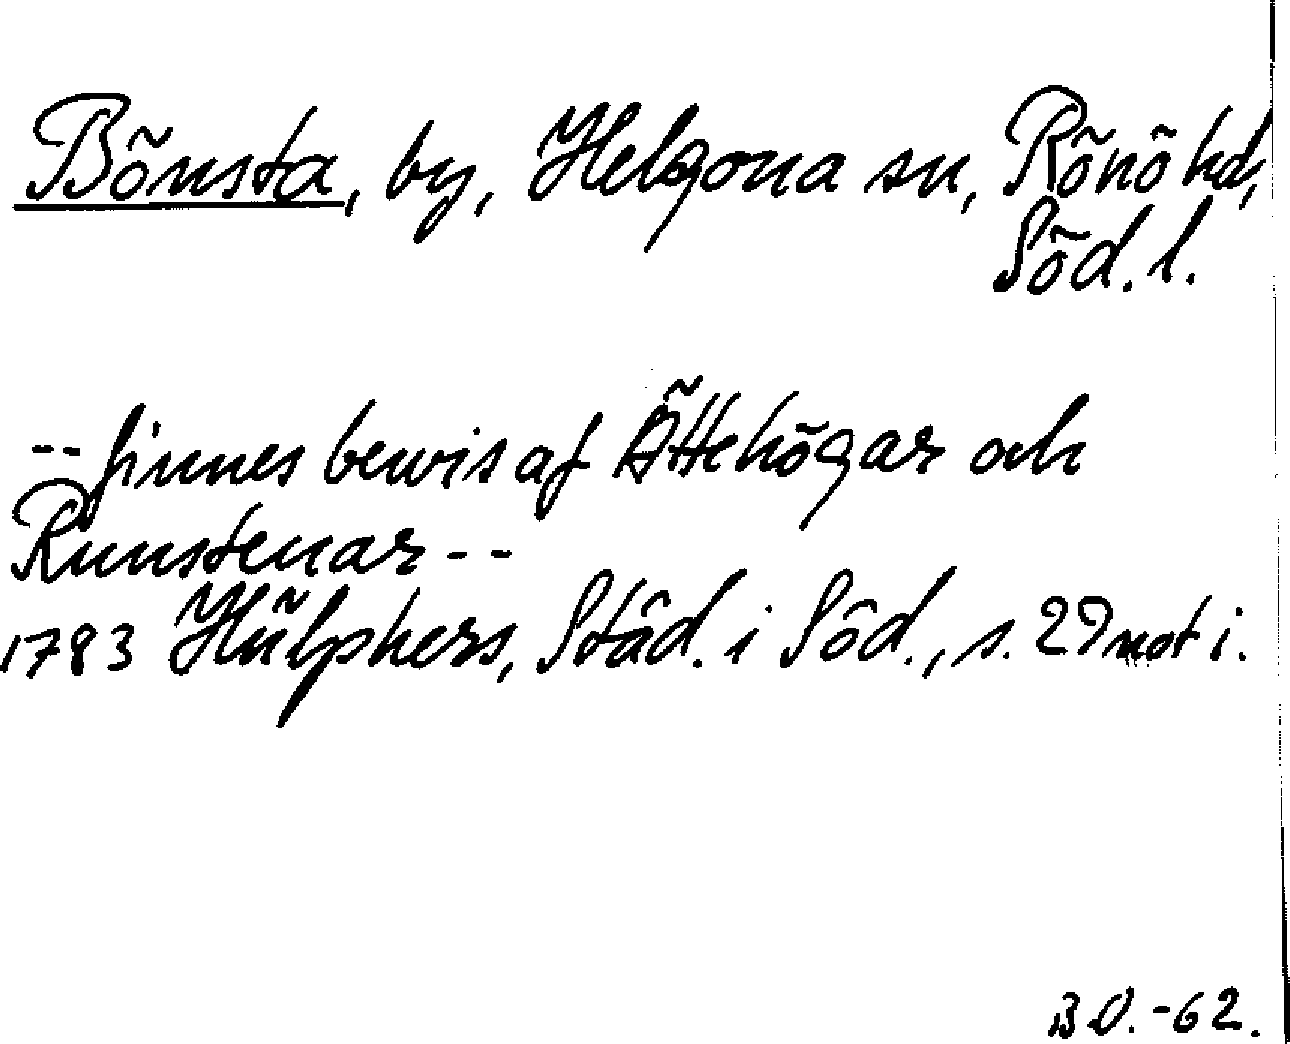 Bönsta, by, Helgona sn, Rönö hd,
Söd. l.
-- finnes bewis af Ättehögar och
Runstenar --
1783 Hülphers, Städ. i Söd., s. 29 not i.
B O. -62.